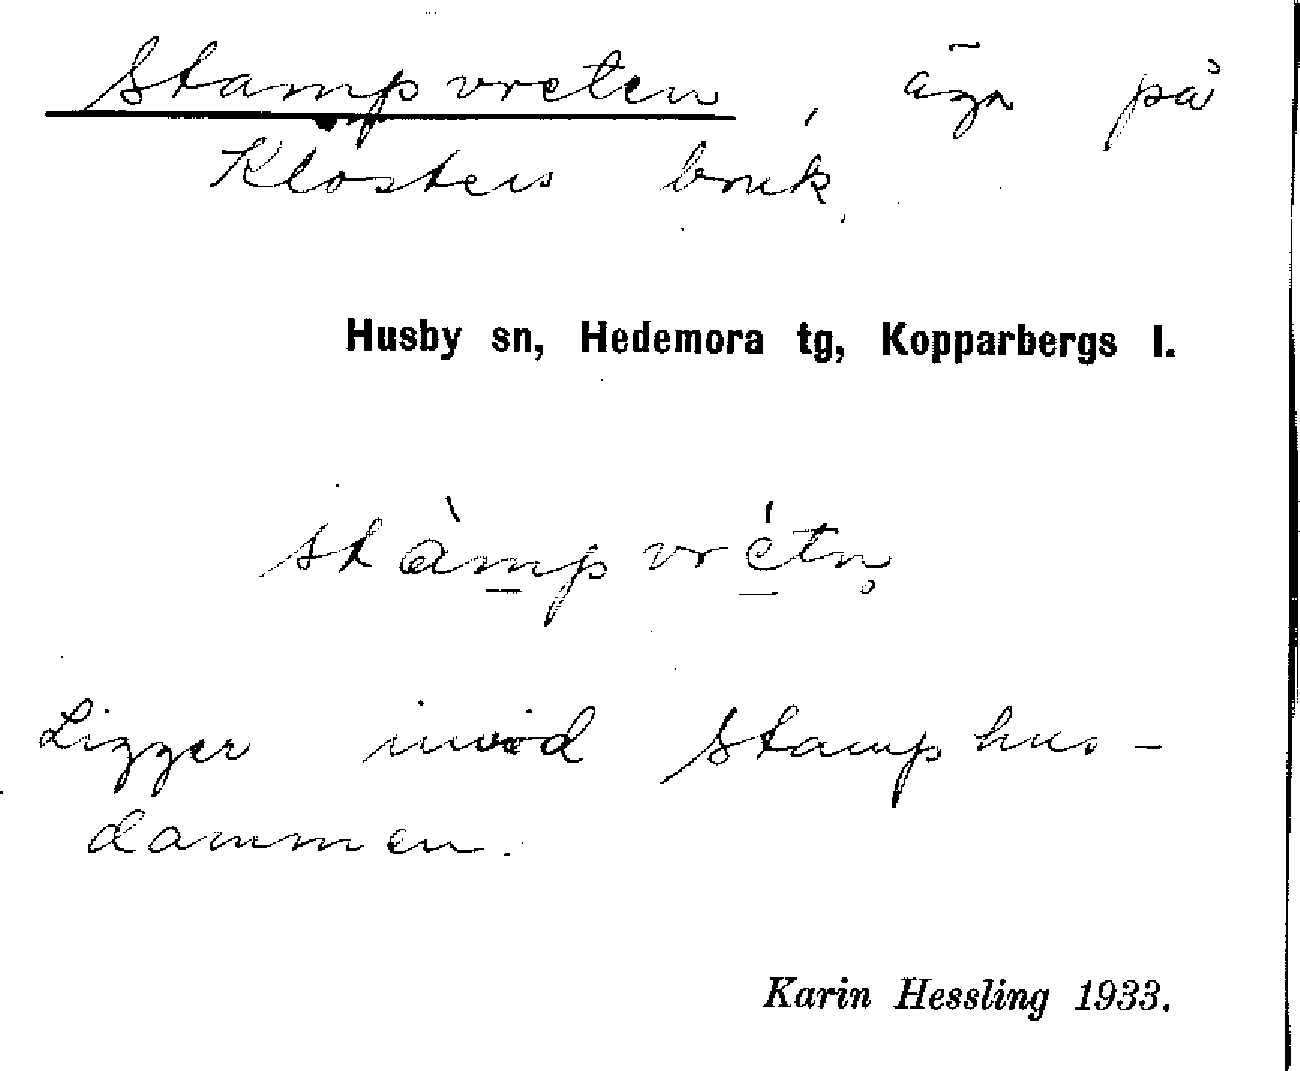 Stampvreten, äga på
Klosters bruk.
Husby sn, Hedemora tg, Kopparbergs l.
stàmpvrétn̥
Ligger invid Stamphus-
dammen.
Karin Hessling 1933.